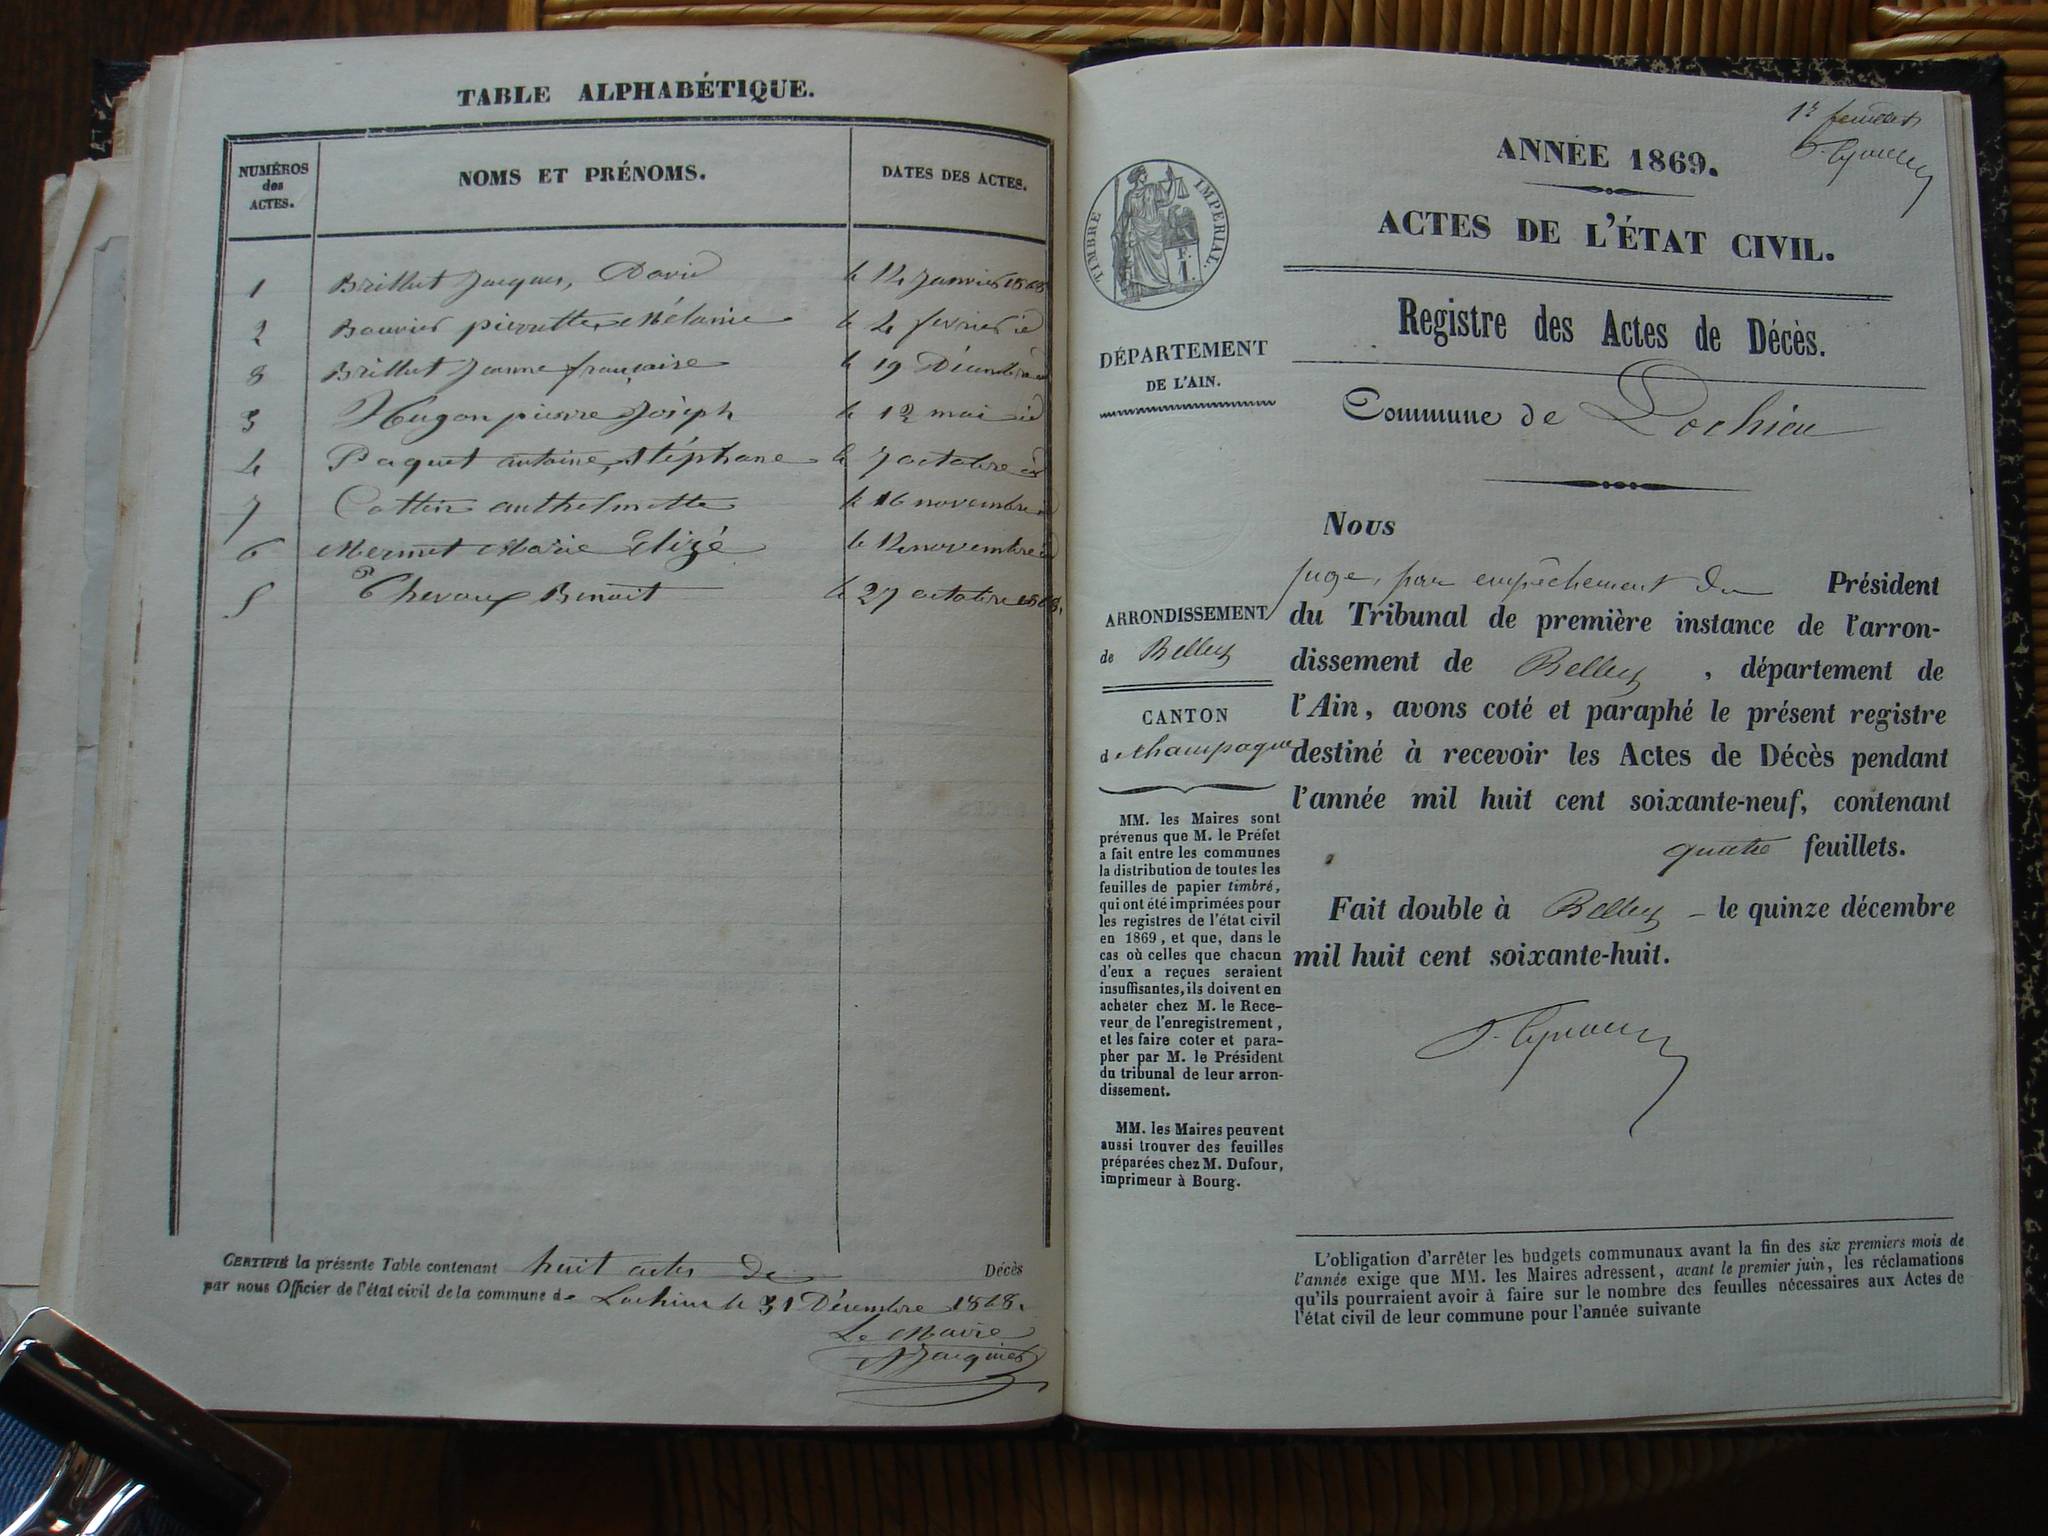 TABLE ALPHABÉTIQUE.
NUMÉROS des ACTES.
NOMS ET PRÉNOMS.
DATES DES ACTES.
1 Brillat Jacques, David le 14 Janvier 1868
2 Bouvier pierrette Mélanie le 4 fevrier id
8 Brillat Jeanne françoise le 19 Décembre id
3 Hugon pierre Joseph le 12 mai id
4 Paquet antoine, Stéphane le 7 octobre id
7 Cottin anthelmette le 16 novembre id
6 Mermet Marie Elizé le 14 novembre id
5 Chevaux Benoit le 27 octobre 1868.
CERTIFIÉ la présente Table contenant huit actes de Décès
par nous Officier de l'état civil de la commune de Lochieu le 31 Décembre 1868.
Le Maire
Jacquier
1er feuillet
ANNÉE 1869.
ACTES DE L'ÉTAT CIVIL.
TIMBRE IMPERIAL.
Registre des Actes de Décès.
DÉPARTEMENT
DE L'AIN.
Commune de Lochieu
ARRONDISSEMENT
de Belley
CANTON
de Champagne
MM. les Maires sont
prévenus que M. le Préfet
a fait entre les communes
la distribution de toutes les
feuilles de papier timbré,
qui ont été imprimées pour
les registres de l'état civil
en 1869, et que, dans le
cas où celles que chacun
d'eux a reçues seraient
insuffisantes, ils doivent en
acheter chez M. le Rece-
veur de l'enregistrement,
et les faire coter et para-
pher par M. le Président
du tribunal de leur arron-
dissement.
MM. les Maires peuvent
aussi trouver des feuilles
préparées chez M. Dufour,
imprimeur à Bourg.
Nous
juge, par empêchement du Président
du Tribunal de première instance de l'arron-
dissement de Belley, département de
l'Ain, avons coté et paraphé le présent registre
destiné à recevoir les Actes de Décès pendant
l'année mil huit cent soixante-neuf, contenant
quatre feuillets.
Fait double à Belley - le quinze décembre
mil huit cent soixante-huit.
L'obligation d'arrêter les budgets communaux avant la fin des six premiers mois de
l'année exige que MM. les Maires adressent, avant le premier juin, les réclamations
qu'ils pourraient avoir à faire sur le nombre des feuilles nécessaires aux Actes de
l'état civil de leur commune pour l'année suivante